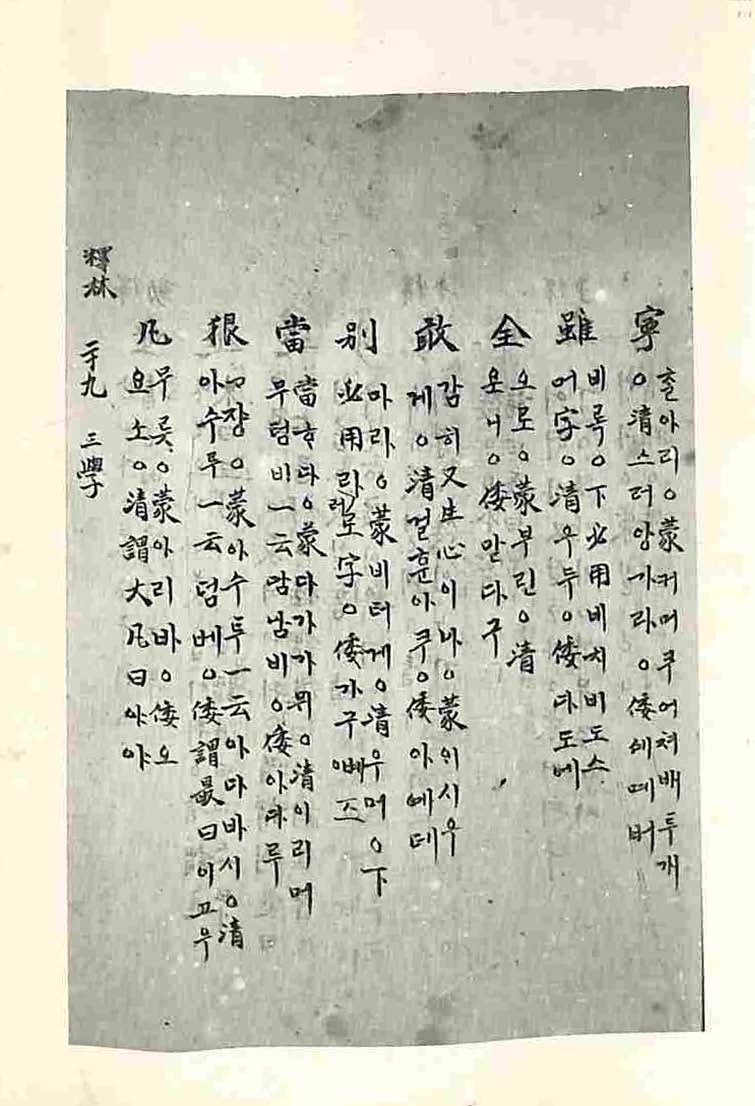 寧
출아리○蒙커머쿠어쳐배투개
○清스러앙가라○倭세메버
雖
비록○下必用비치비도스
어字○清우두○倭다도에
全
오로○蒙부린○清
온○倭맏다구
敢
감히又生心이나○蒙위시우
게○清걸훈아쿠○倭아예데
別
마라○蒙비터게○清우머○下
必用라러로字○倭가구뻬즈
當
當ᄒᆞ다○蒙다가가뮈○清이리머
무텀비一云담남비○倭아다루
狠
ᄀᆞ쟝○蒙아수투一云아마바시○清
아수루一云덤베○倭謂最曰이고우
凡
무릇○蒙아리바○倭오
욘소○清謂大凡曰야야
釋林 卄九 三學